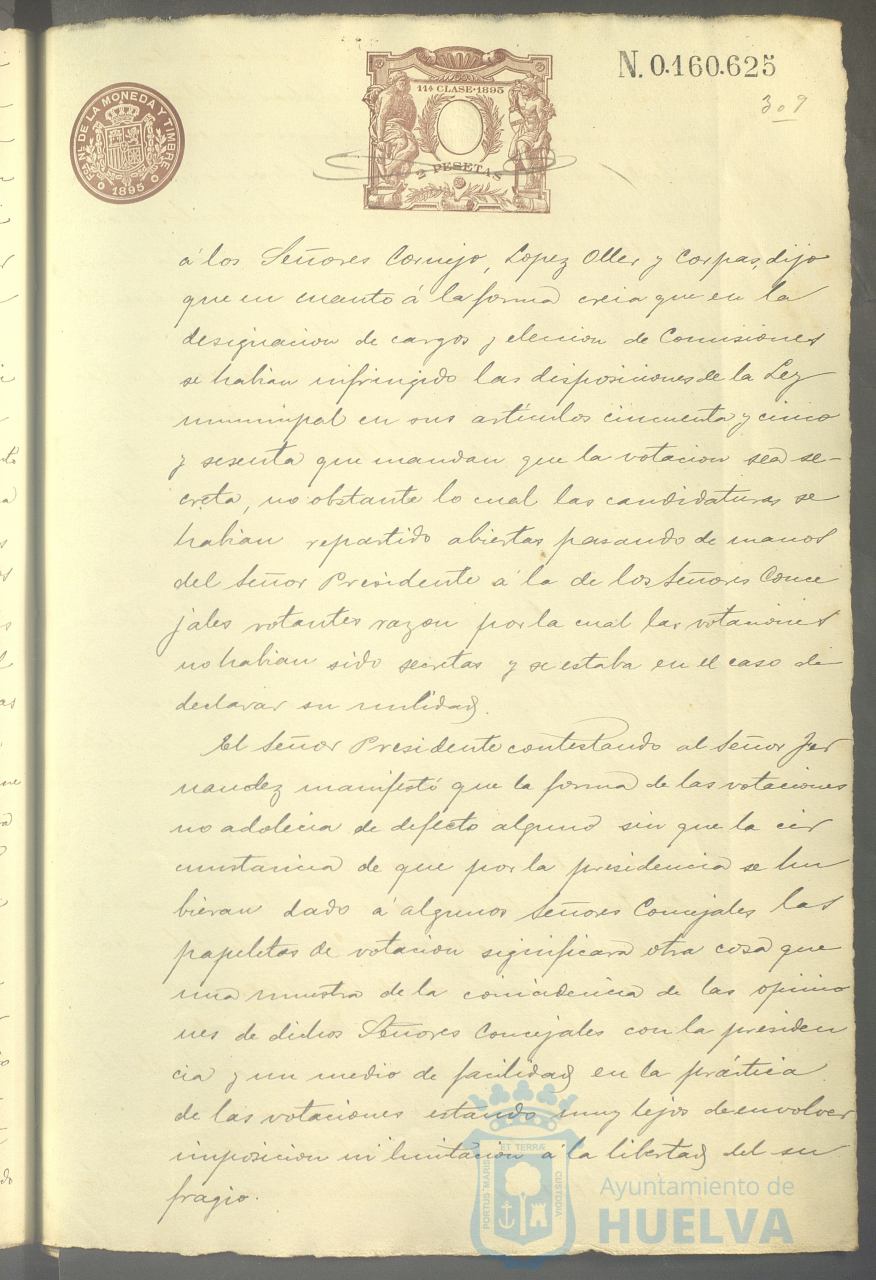 N. 0.160.625
309
FCA. NL. DE LA MONEDA Y TIMBRE
1895
11ª CLASE·1895
2 PESETAS
á los Señores Cornejo, Lopez Oller y Corpas, dijo
que en cuanto á la forma creia que en la
designacion de cargos y eleccion de Comisiones
se habian infringido las disposiciones de la Ley
municipal en sus artículos cincuenta y cinco
y sesenta que mandan que la votacion sea se-
creta, no obstante lo cual las candidaturas se
habian repartido abiertas pasando de manos
del Señor Presidente á la de los Señores Conce
jales votantes razon por la cual las votaciones
no habian sido secretas y se estaba en el caso de
declarar su nulidad.
El Señor Presidente contestando al Señor Fer
nandez manifestó que la forma de las votaciones
no adolecia de defecto alguno sin que la cir
cunstancia de que por la presidencia se hu
bieran dado á algunos Señores Concejales las
papeletas de votacion significara otra cosa que
una muestra de la coincidencia de las opinio
nes de dichos Señores Concejales con la presiden
cia y un medio de facilidad en la práctica
de las votaciones estando muy lejos de envolver
imposicion ni limitacion á la libertad del su
fragio.
PORTUS MARIS ET TERRÆ CUSTODIA
Ayuntamiento de
HUELVA